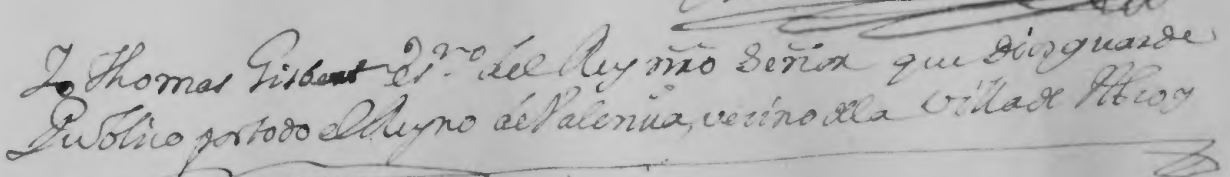 Yo Thomas Gisbert es.no del Rey nro Señor que Dios guarde
Publico por todo el Reyno de Valencia, vecino de la Villa de Alcoy